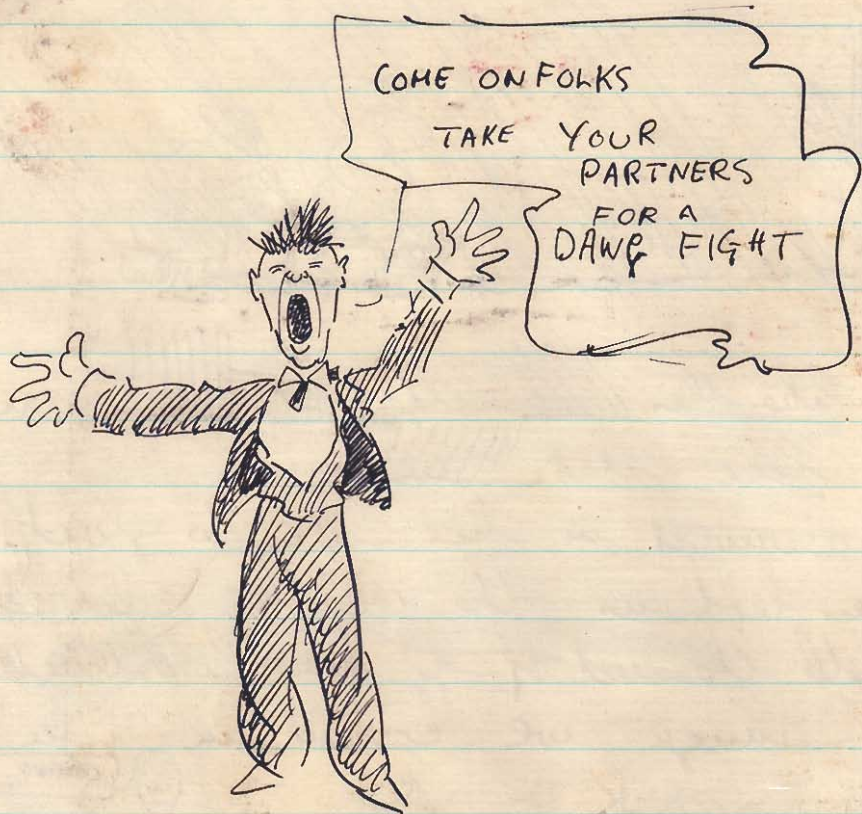 COME ON FOLKS
TAKE YOUR
PARTNERS
FOR A
DAWG FIGHT